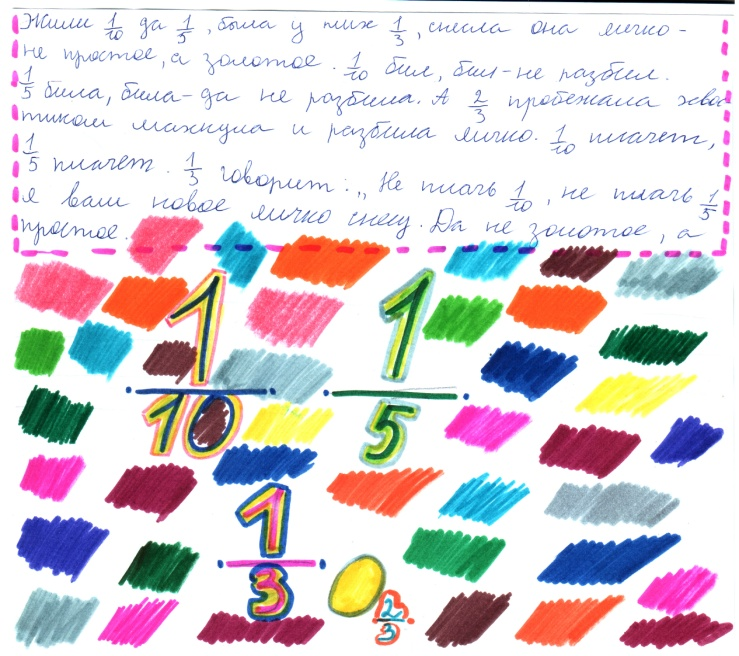 Жили 1/10 да 1/5, была у них 1/3, снесла она яичко -
не простое, а золотое. 1/10 бил, бил - не разбил.
1/5 била, била - да не разбила. А 2/3 пробежала хвос
тиком махнула и разбила яичко. 1/10 плачет,
1/5 плачет. 1/3 говорит: „Не плачь 1/10, не плачь 1/5
я вам новое яичко снесу. Да не золотое, а
простое.
1/10 1/5
1/3 2/3